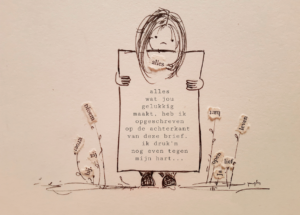 alles
alles
wat jou
gelukkig
maakt, heb ik
opgeschreven
op de achterkant
van deze brief.
ik druk'm
nog even tegen
mijn hart...